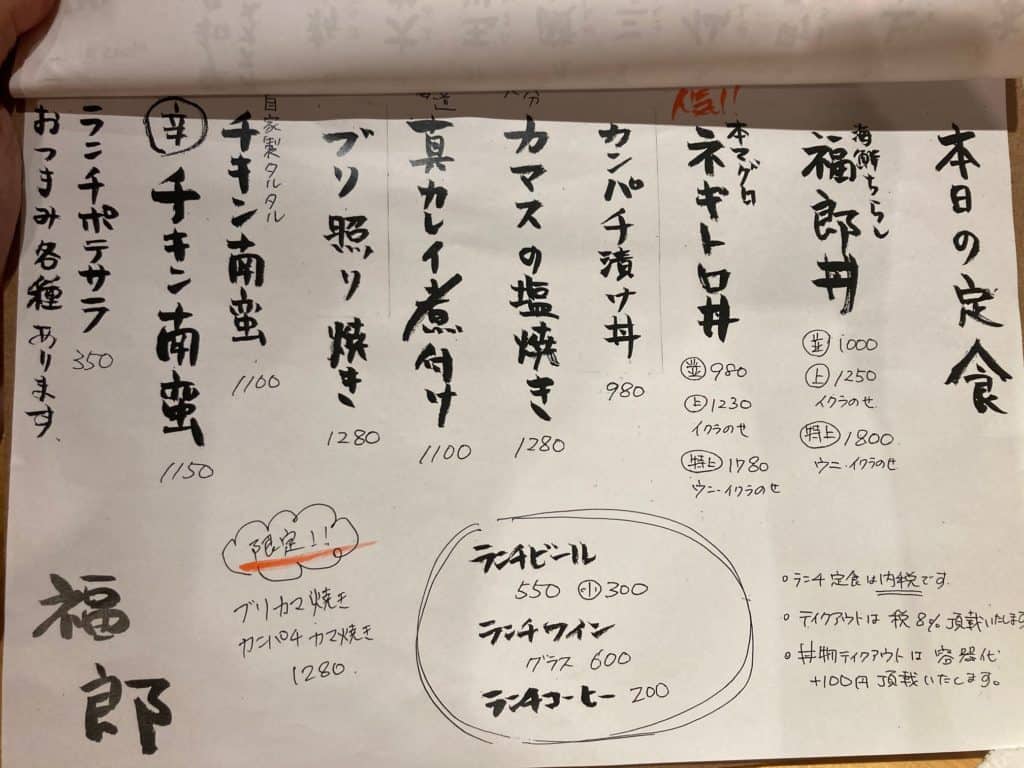 本日の定食
海鮮ちらし
福郎丼
並 1000
上 1250
イクラのせ
特上 1800
ウニ・イクラのせ
人気!!
本マグロ
ネギトロ丼
並 980
上 1230
イクラのせ
特上 1780
ウニ・イクラのせ
カンパチ漬け丼
980
カマスの塩焼き
1280
真カレイ煮付け
1100
ブリ照り焼き
1280
自家製タルタル
チキン南蛮
1100
辛 チキン南蛮
1150
ランチポテサラ
350
おつまみ各種あります。
限定!!
ブリカマ焼き
カンパチカマ焼き
1280
ランチビール
550 小 300
ランチワイン
グラス 600
ランチコーヒー 200
○ランチ定食は内税です
○テイクアウトは税8%頂戴いたします
○丼物テイクアウトは容器代
+100円頂戴いたします。
福郎